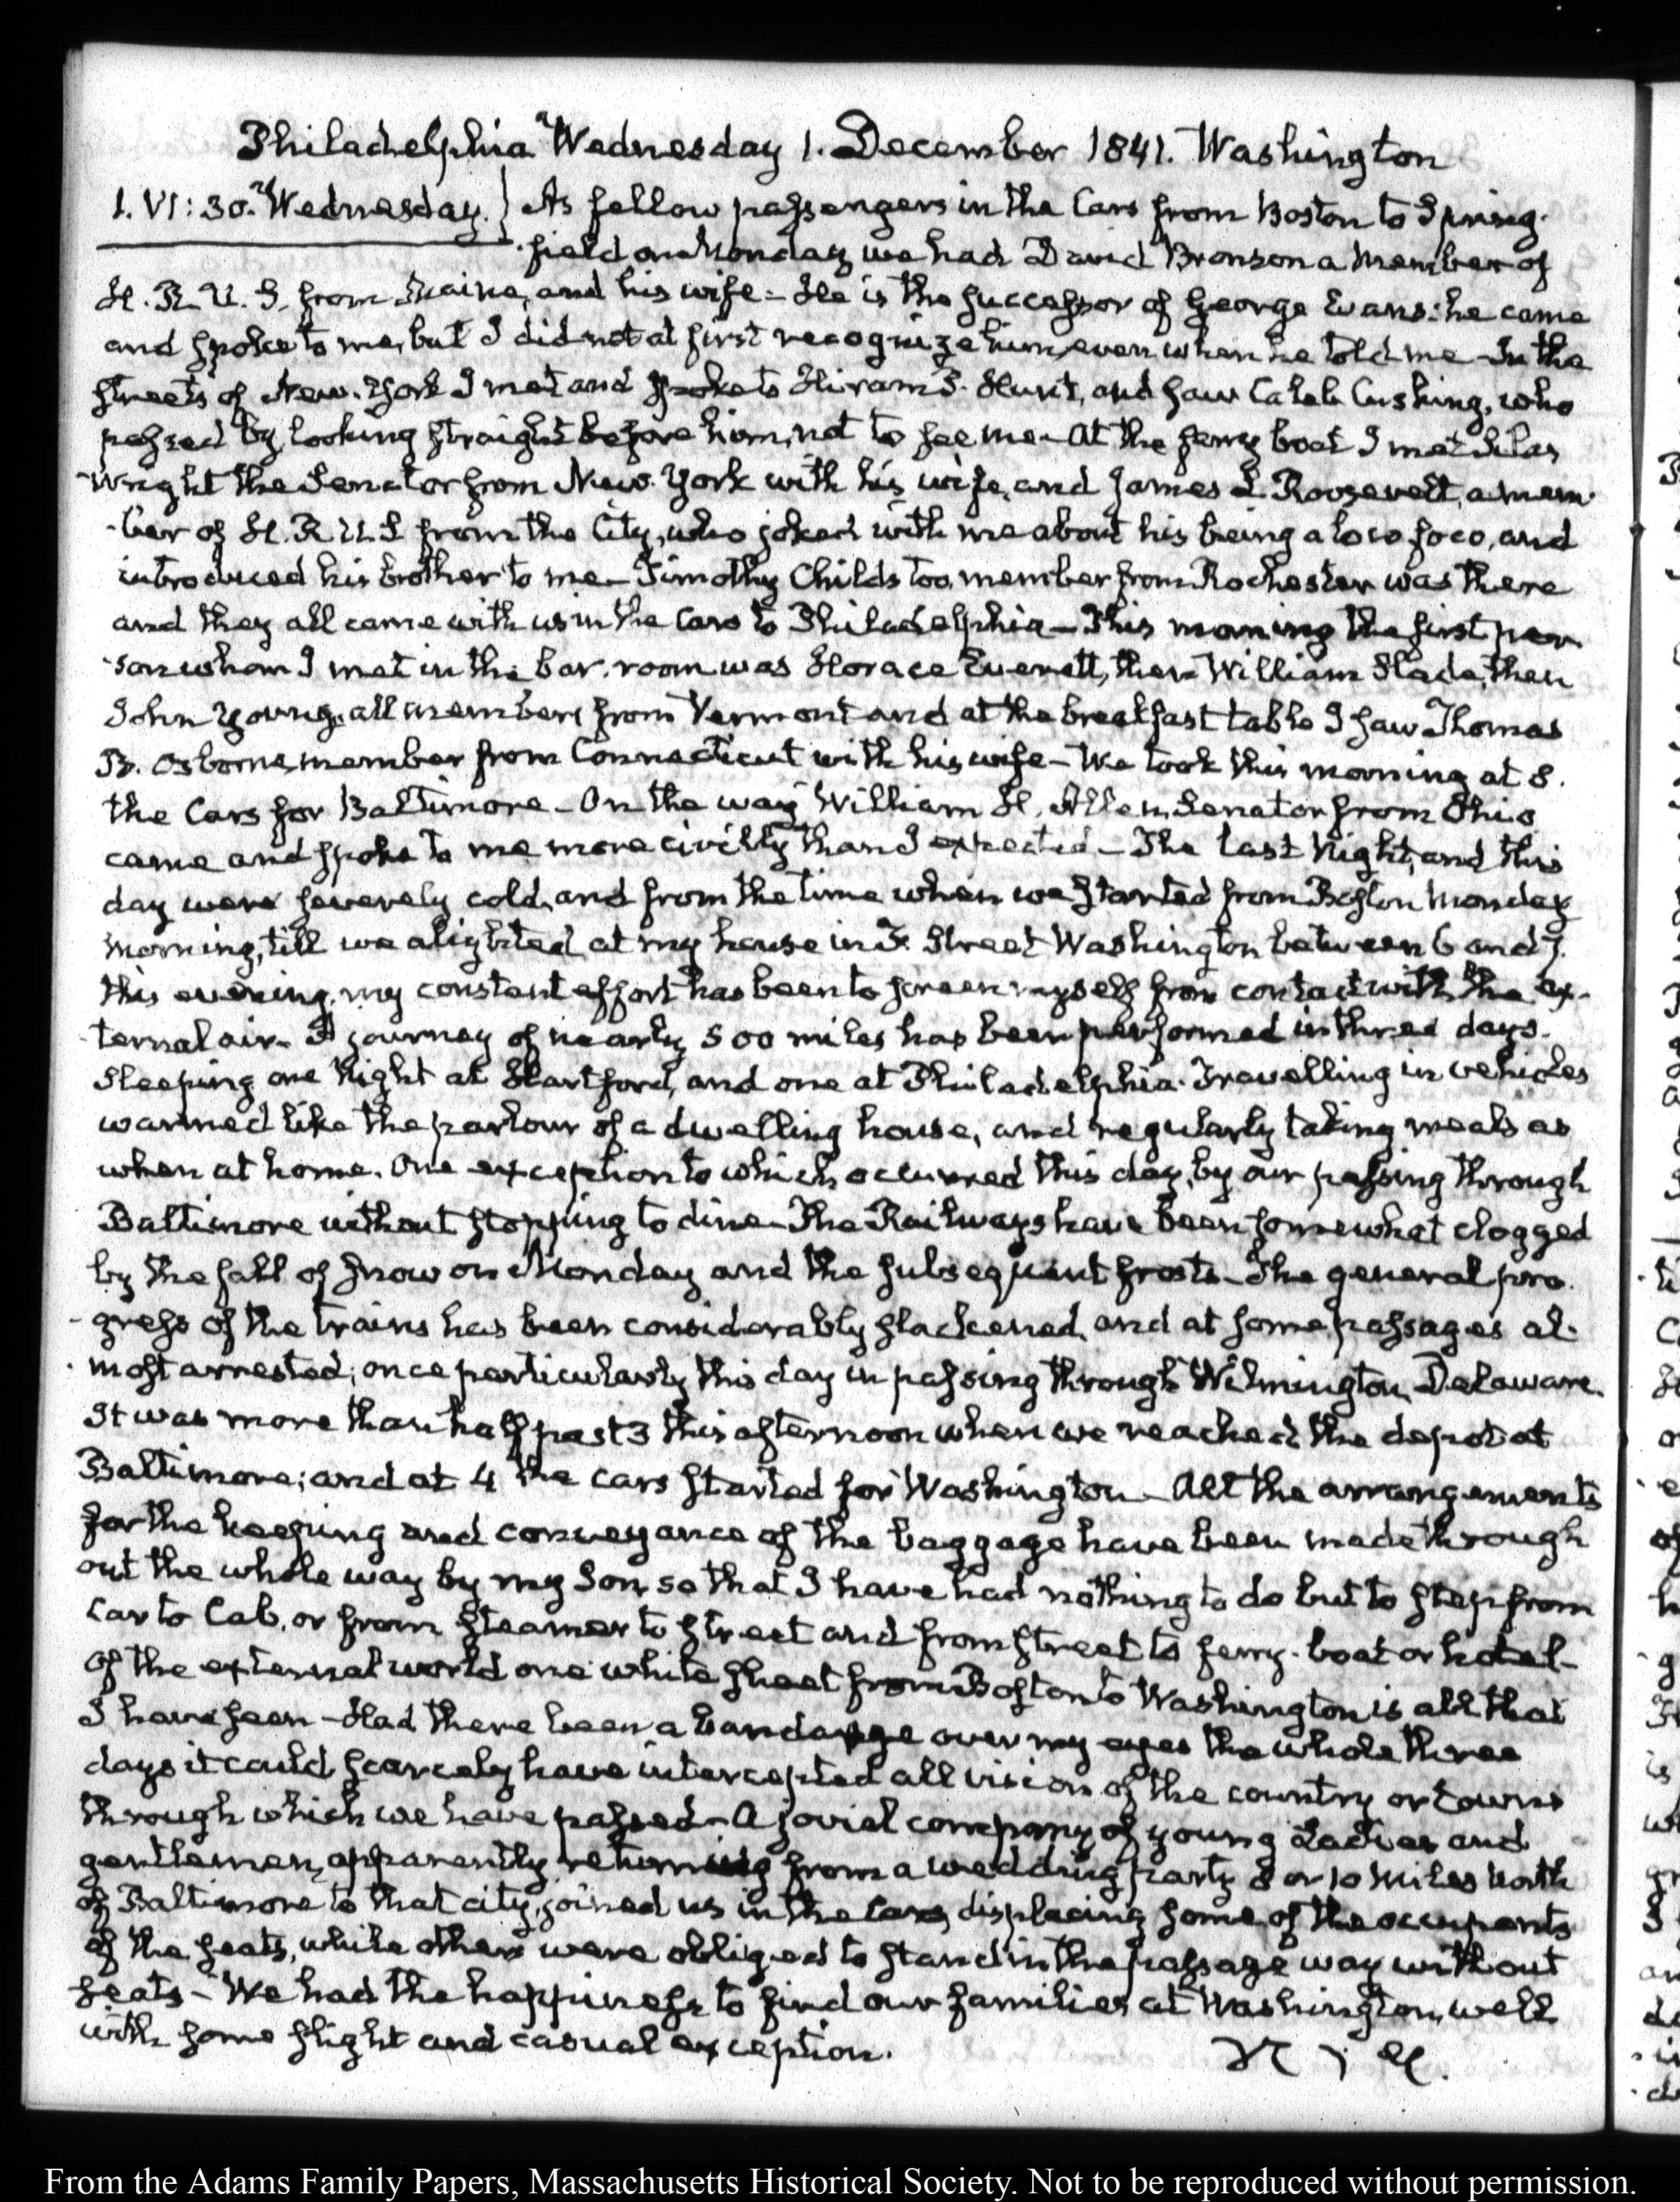 Philadelphia Wednesday 1. December 1841. Washington
1. VI:30. Wednesday. } As fellow passengers in the Cars from Boston to Spring-
-field on Monday we had David Bronson a member of
H. R. U. S. from Maine, and his wife - He is the successor of George Evans: he came
and spoke to me, but I did not at first recognize him, even when he told me - In the
streets of New-York I met and spoke to Hiram P. Hunt, and saw Caleb Cushing, who
passed by, looking straight before him, not to see me - At the ferry boat I met Silas
Wright the Senator from New-York with his wife, and James I. Roosevelt, a mem-
-ber of H. R. U. S from the City, who joked with me about his being a loco foco, and
introduced his brother to me - Timothy Childs too, member from Rochester was there
and they all came with us in the Cars to Philadelphia - This morning the first per
-son whom I met in the bar-room was Horace Everett, then William Slade, then
John Young, all members from Vermont and at the breakfast table I saw Thomas
B. Osborne, member from Connecticut with his wife - We took this morning at 8.
the Cars for Baltimore - On the way William H. Allen, Senator from Ohio
came and spoke to me more civilly than I expected - The last Night, and this
day were severely cold, and from the time when we started from Boston Monday
morning, till we alighted at my house in F. Street Washington between 6 and 7.
this evening, my constant effort has been to screen myself from contact with the ex-
-ternal air - A journey of nearly 500 miles has been performed in three days.
Sleeping one Night at Hartford, and one at Philadelphia. Travelling in vehicles
warmed like the parlour of a dwelling house, and regularly taking meals as
when at home. One exception to which occurred this day, by our passing through
Baltimore without stopping to dine - The Railways have been somewhat clogged
by the fall of snow on Monday and the subsequent frosts - The general pro.
-gress of the trains has been considerably slackened, and at some passages al-
-most arrested; once particularly this day in passing through Wilmington, Delaware.
It was more than half past 3 this afternoon when we reached the depot at
Baltimore; and at 4 the cars started for Washington - All the arrangements
for the keeping and conveyance of the baggage have been made through
out the whole way by my Son, so that I have had nothing to do but to step from
car to Cab, or from steamer to street and from street to ferry-boat or hotel -
Of the external world one white sheet from Boston to Washington is all that
I have seen - Had there been a bandage over my eyes the whole three
days it could scarcely have intercepted all vision of the country or towns
through which we have passed - A jovial company of young Ladies and
gentlemen, apparently returning from a wedding party 8 or 10 Miles North
of Baltimore to that city, joined us in the Cars, displacing some of the occupants
of the seats, while others were obliged to stand in the passage way without
seats - We had the happiness to find our families at Washington, well
with some slight and casual exception.
From the Adams Family Papers, Massachusetts Historical Society. Not to be reproduced without permission.